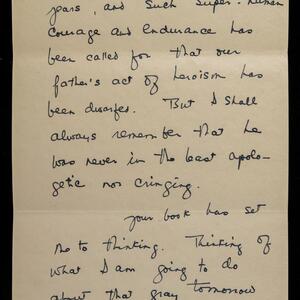 years, and such super-human
courage and endurance has
been called for that our
father's act of heroism has
been dwarfed. But I shall
always remember that he
was never in the least apolo-
getic nor cringing.
your book has set
me to thinking. Thinking of
what I am going to do
about that gray tomorrow